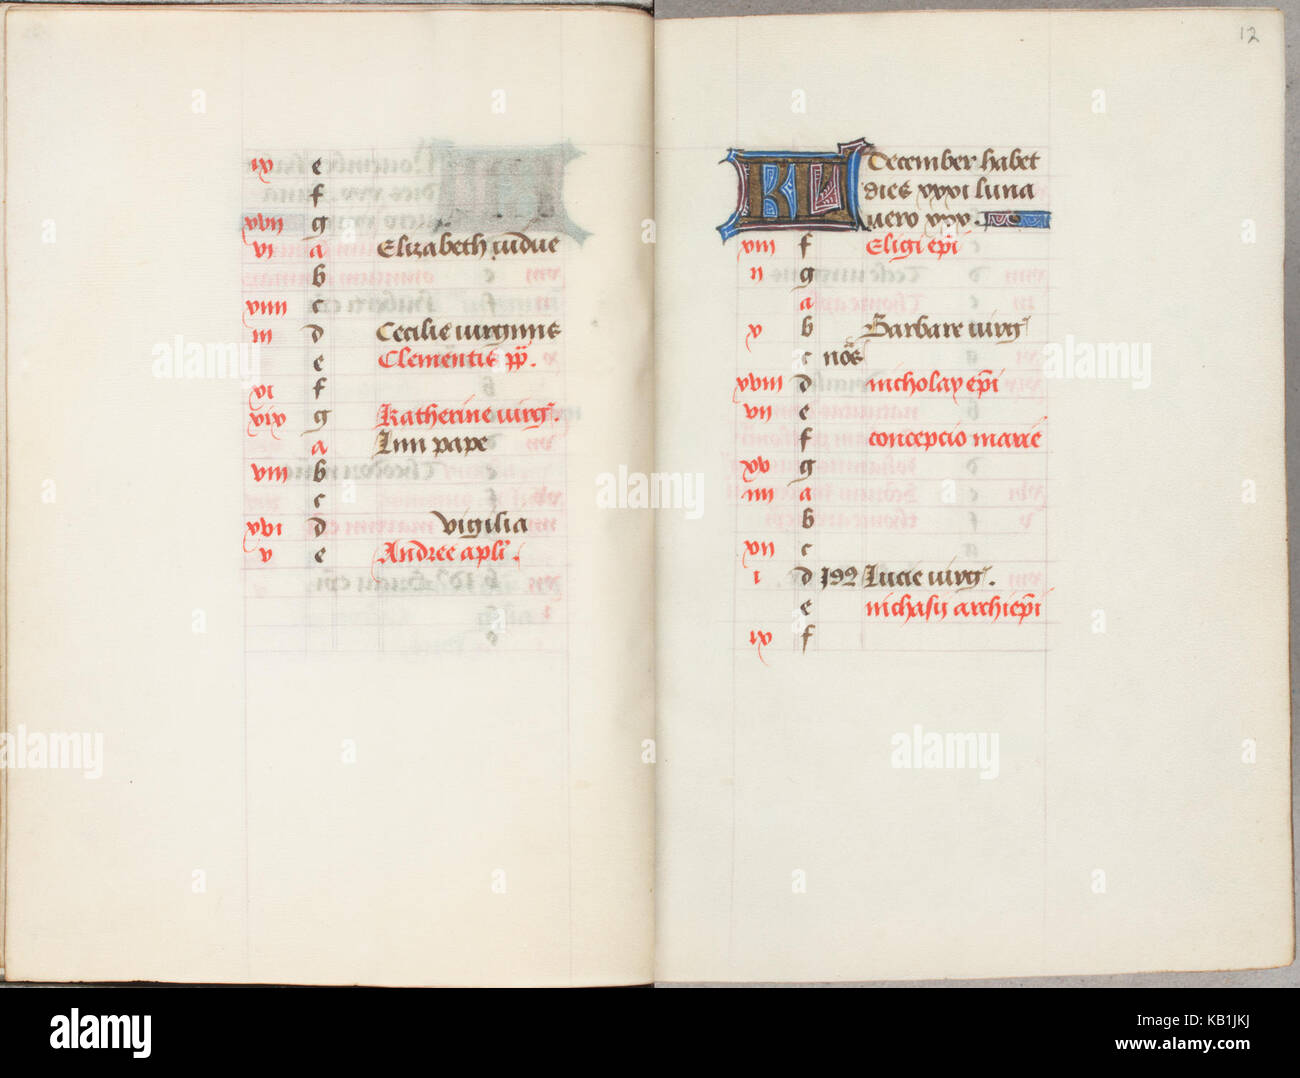 ix e
f
xvii g
vi a Elizabeth vidue
b
viiii c
iii d Cecilie virginis
e Clementis pp.
vi f
xix g Katherine virg.
a Lini pape
viii b
c
xvi d vigilia
v e Andree apli.
12
KL December habet
dies xxxi luna
vero xxx.
xiii f Eligi epi
ii g
a
v b Barbare virg
c nos
xviii d nicholay epi
vii e
f concepcio marie
xv g
iiii a
b
xii c
i d Idꝰ Lucie virg.
e nichasii archiepi
ix f
alamy
Image ID: KB1JKJ
www.alamy.com